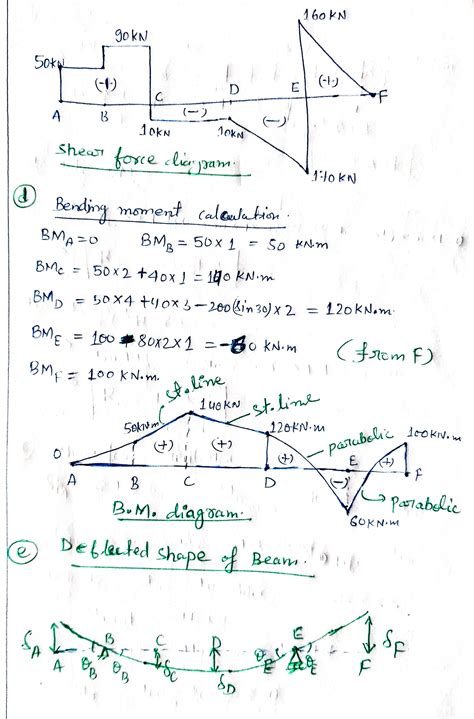 160 KN
90KN
50KN
(+)
(+)
A B C D E F
(-)
(-)
10KN
10KN
170 KN
Shear force diagram.
(d) Bending moment calculation.
BM_A = 0 BM_B = 50 x 1 = 50 KN.m
BM_C = 50x2 + 40x1 = 140 KN.m
BM_D = 50x4 + 40x3 - 200(sin30)x2 = 120KN.m
BM_E = 100 - 80x2x1 = -60 KN.m (from F)
BM_F = 100 KN.m.
st.line
140KN
st.line
50KNm
120KN.m
parabolic
100KN.m
0
(+)
(+)
(+)
(-)
(+)
A B C D E F
Parabolic
60KN.m
B.M. diagram.
(e) Deflected shape of Beam.
δ_A
A
θ_B
B
θ_B
C
δ_C
D
δ_D
θ_E
E
θ_E
F
δ_F